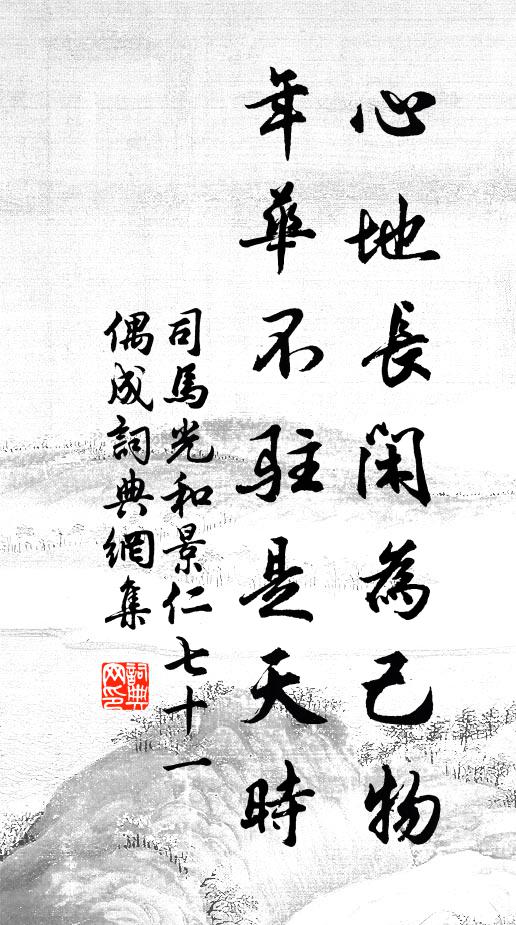 心地長閑為己物
年華不駐是天時
司馬光和景仁七十一
偶成詞典網集
詞典网印